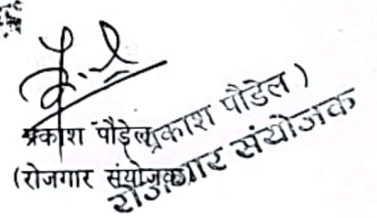 प्रकाश पौडेल
(रोजगार संयोजक)
प्रकाश पौडेल )
रोजगार संयोजक